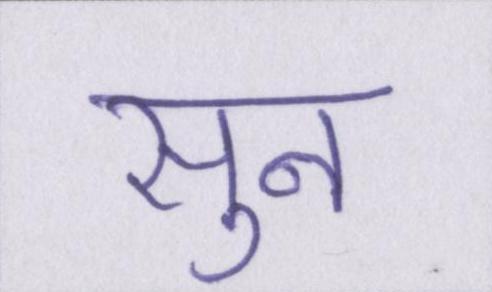 सुन